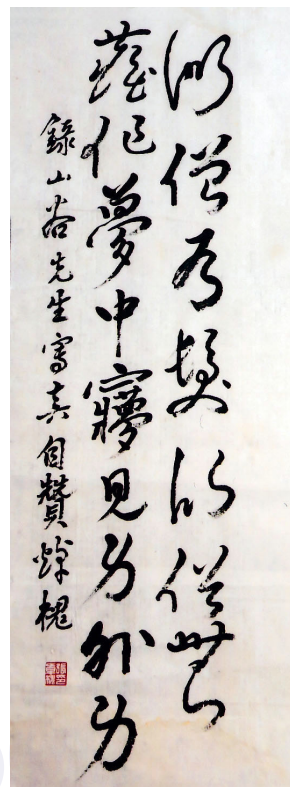 似僧有髮似俗無
塵作夢中夢見身外身
錄山谷先生寫真自贊槐